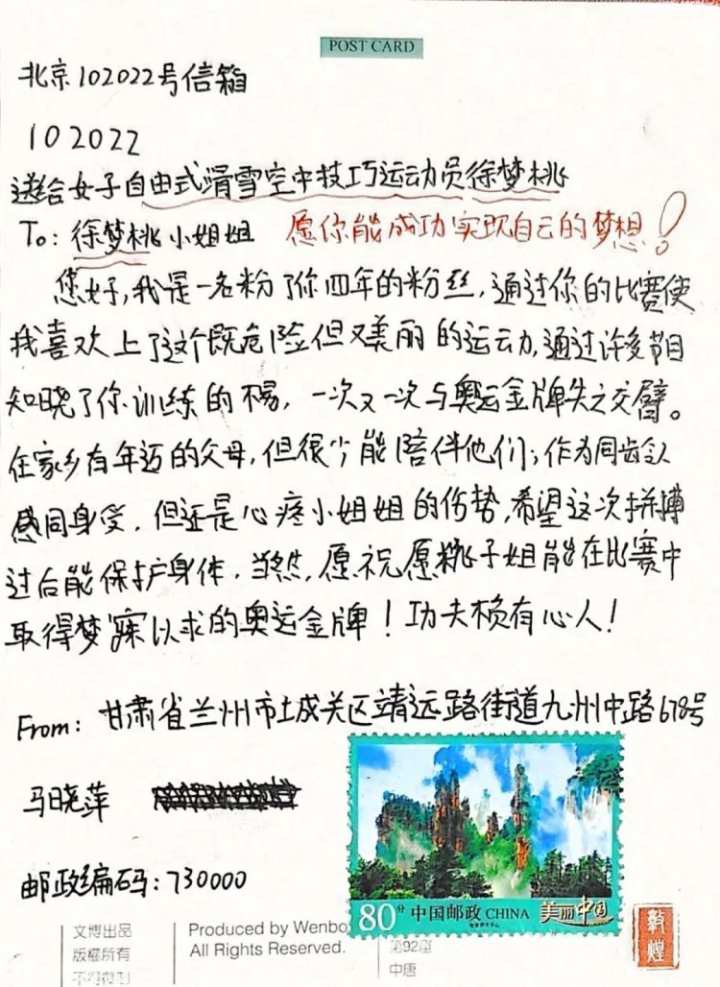 POST CARD
北京102022号信箱
102022
送给女子自由式滑雪空中技巧运动员徐梦桃
To: 徐梦桃小姐姐 愿你能成功实现自己的梦想!
您好,我是一名粉了你四年的粉丝,通过你的比赛使
我喜欢上了这个既危险但又美丽的运动,通过许多节目
知晓了你训练的不易,一次又一次与奥运金牌失之交臂。
在家乡有年迈的父母,但很少能陪伴他们;作为同龄人
感同身受,但还是心疼小姐姐的伤势,希望这次拼搏
过后能保护身体,当然,愿祝愿桃子姐能在比赛中
取得梦寐以求的奥运金牌!功夫不负有心人!
From: 甘肃省兰州市城关区靖远路街道九州中路678号
马晓萍
邮政编码:730000
80分 中国邮政 CHINA 美丽中国
文博出品
版權所有
不得複製
Produced by Wenbo
All Rights Reserved.
第92窟
中唐
敦煌